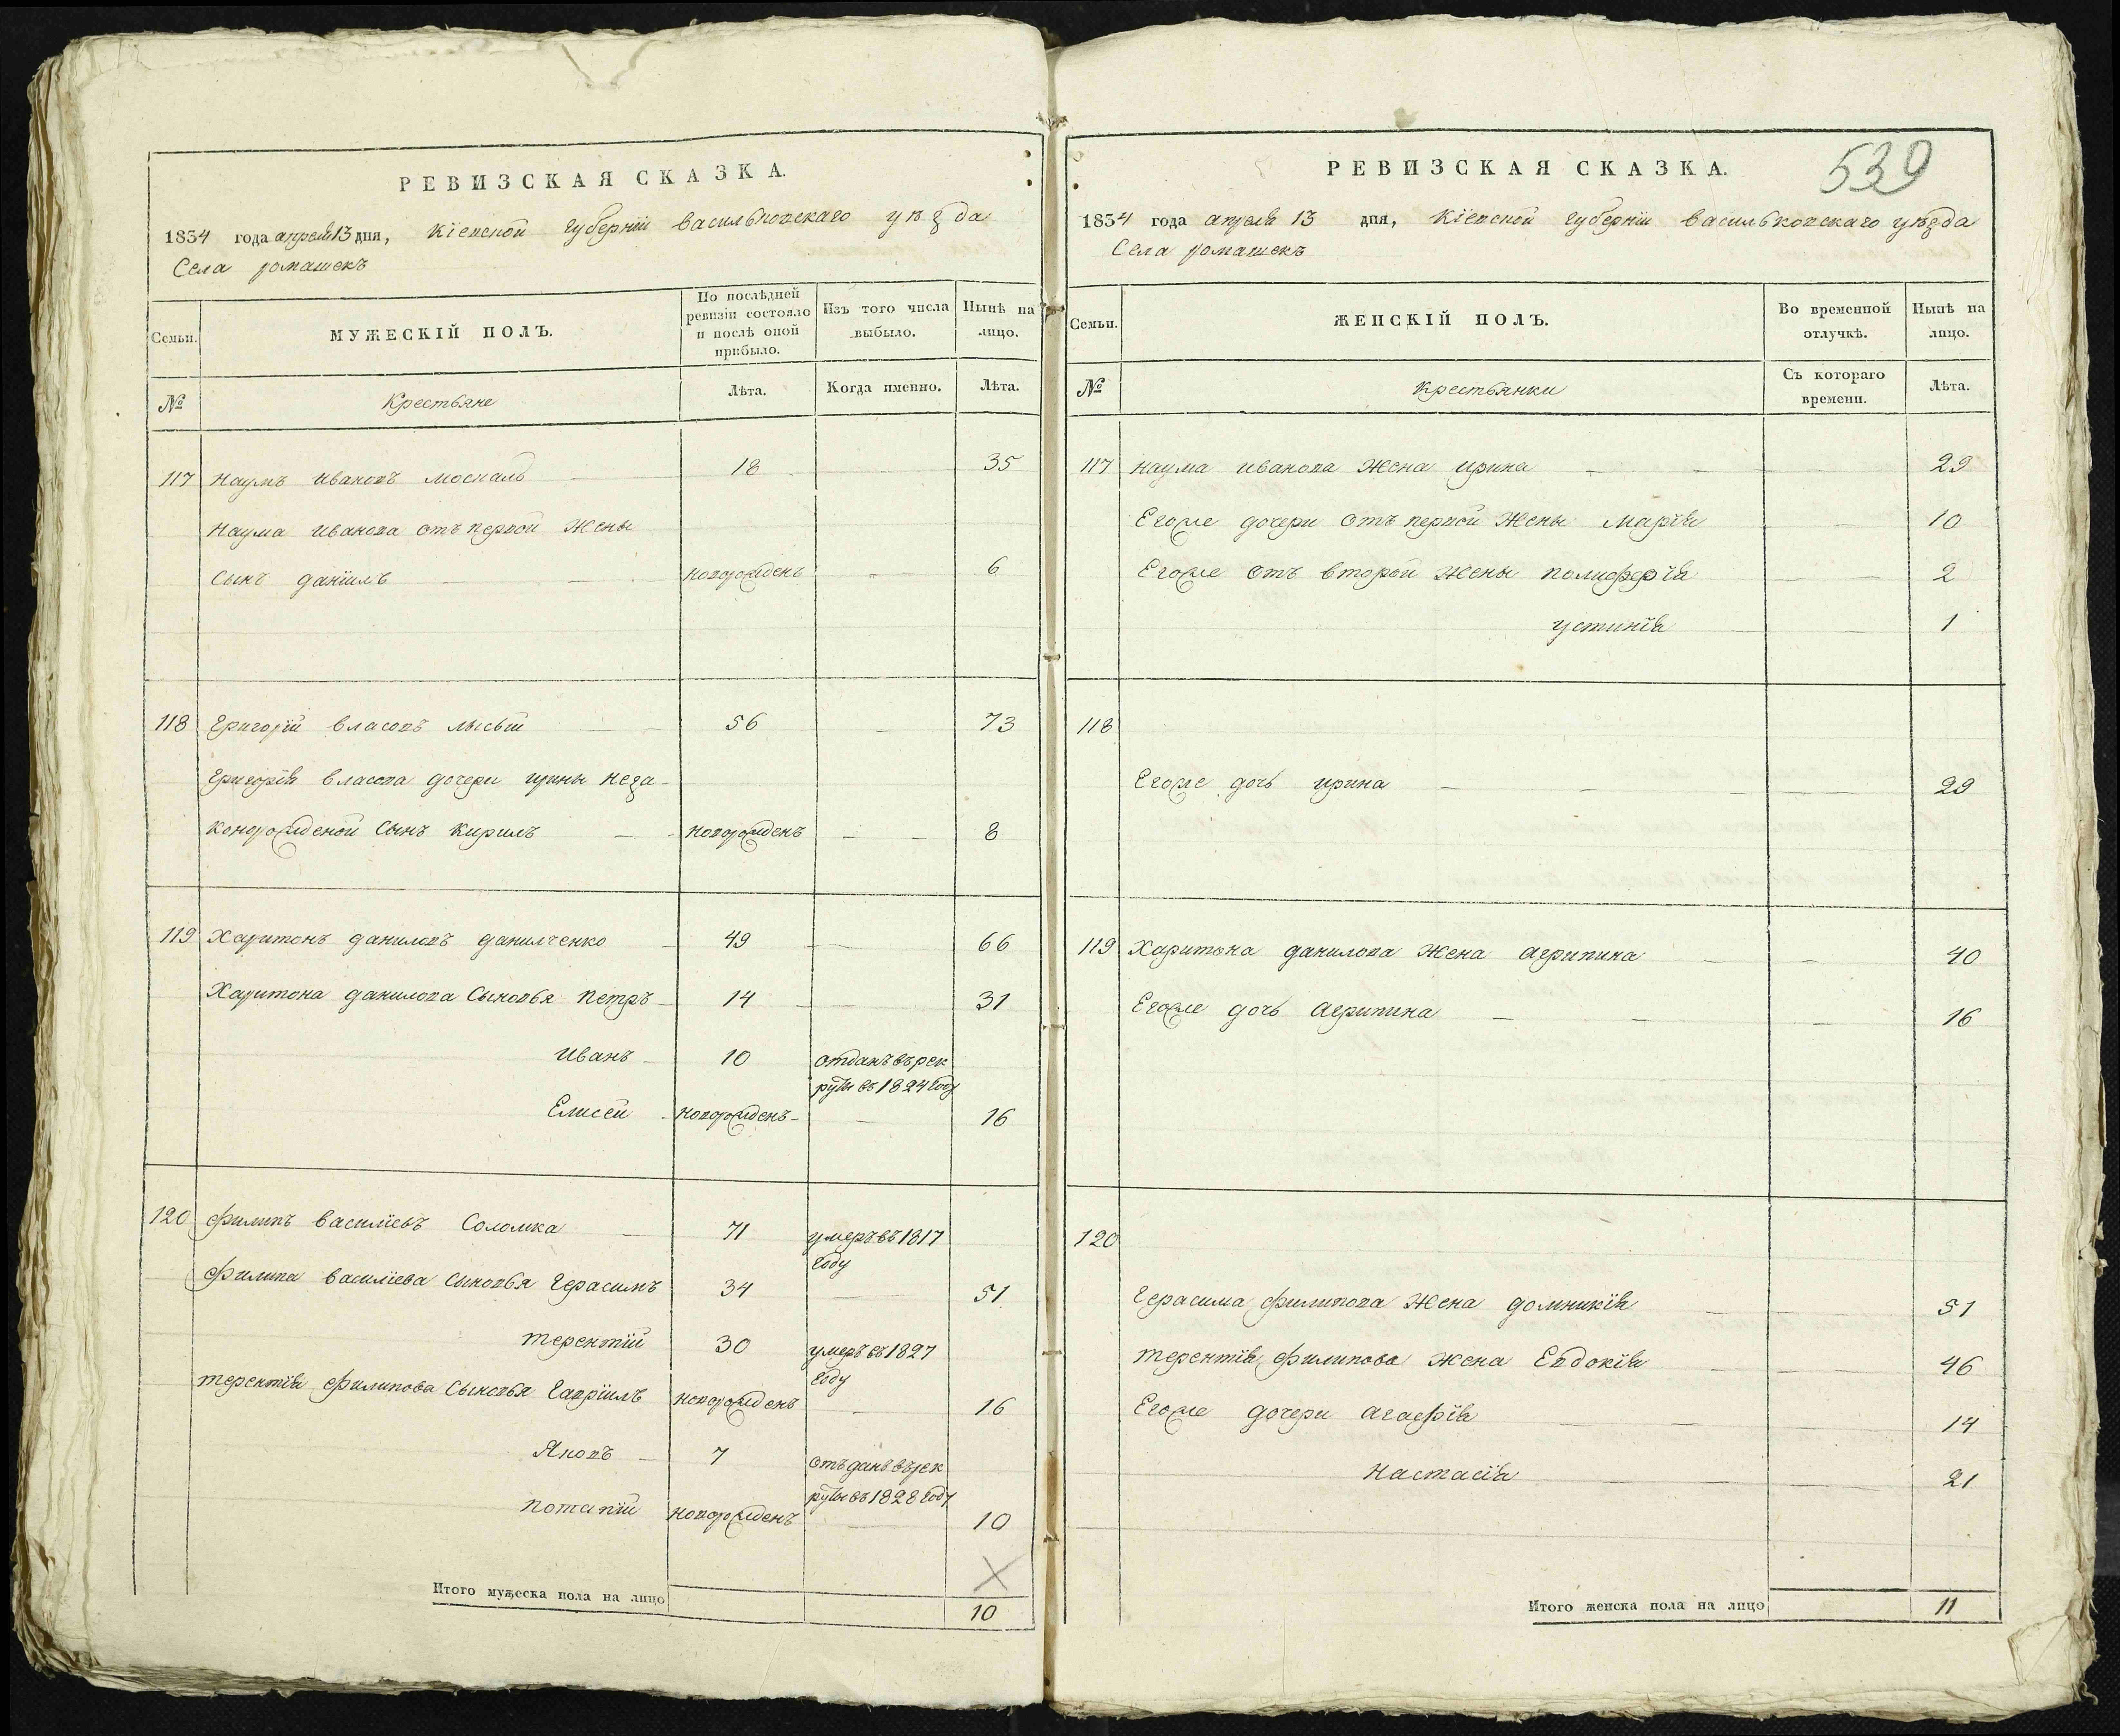 РЕВИЗСКАЯ СКАЗКА.
1834 года апреля 13 дня, Кіевской губерніи васильковскаго уѣзда
Села ромашекъ
Семьи.
МУЖЕСКІЙ ПОЛЪ.
По послѣдней ревизіи состояло и послѣ оной прибыло.
Изъ того числа выбыло.
Нынѣ на лицо.
№
Крестьяне
Лѣта.
Когда именно.
Лѣта.
117 Наумъ Ивановъ москаль 18 35
Наума Иванова отъ первой жены
сынъ даніилъ новорожденъ 6
118 Григорій власовъ лысый 56 73
Григорія власова дочери ирины неза-
конорожденой сынъ Кирилъ новорожденъ 8
119 Харитонъ даниловъ данилченко 49 66
Харитона данилова сыновья петръ 14 31
Иванъ 10 отданъ въ рек
руты въ 1824 году
Елисей новорожденъ 16
120 Филипъ василіевъ Соломка 71 умеръ въ 1817
году
Филипа василіева сыновья Герасимъ 34 51
терентій 30 умеръ въ 1827
году
терентія Филипова сыновья Гавріилъ новорожденъ 16
Яковъ 7 отъданъ въ рек
руты въ 1828 году
потапій новорожденъ 10
Итого мужеска пола на лицо 10
РЕВИЗСКАЯ СКАЗКА.
539
1834 года апреля 13 дня, Кіевской губерніи васильковскаго уѣзда
Села ромашекъ
Семьи.
ЖЕНСКІЙ ПОЛЪ.
Во временной отлучкѣ.
Нынѣ на лицо.
№
Крестьянки
Съ котораго времени.
Лѣта.
117 Наума Иванова жена ирина 29
Егоже дочери отъ первой жены марія 10
Егоже отъ второй жены полиферія 2
устинія 1
118
Егоже дочь ирина 29
119 Харитона данилова жена агрипина 40
Егоже дочь агрипина 16
120
Герасима филипова жена домникія 51
терентія филипова жена Евдокія 46
Егоже дочери агафія 14
Настасія 21
Итого женска пола на лицо 11